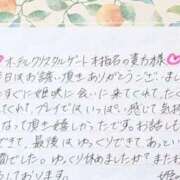 ♡ホテルクリスタルゲート本指名の貴方様♡
日はお誘い頂きありがとうございまし
すぐに姫咲に会いに来てくださ
てくれて、プレイではいっぱい感じて気持
なって頂き嬉しかったです。お話しも
できて、最後はゆっくりできて、あってい
間でした。ゆっくり休めましたか?また
しております。